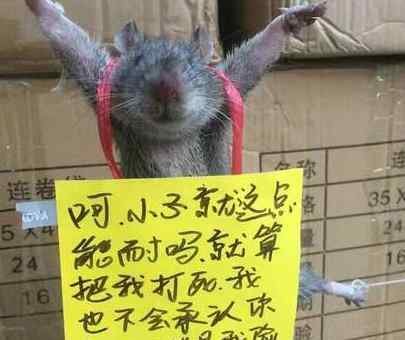 呵.小子就这点
能耐吗.就算
把我打死.我
也不会承认你
连卷
5
24
16
名称
格
量
35X
24
16
验